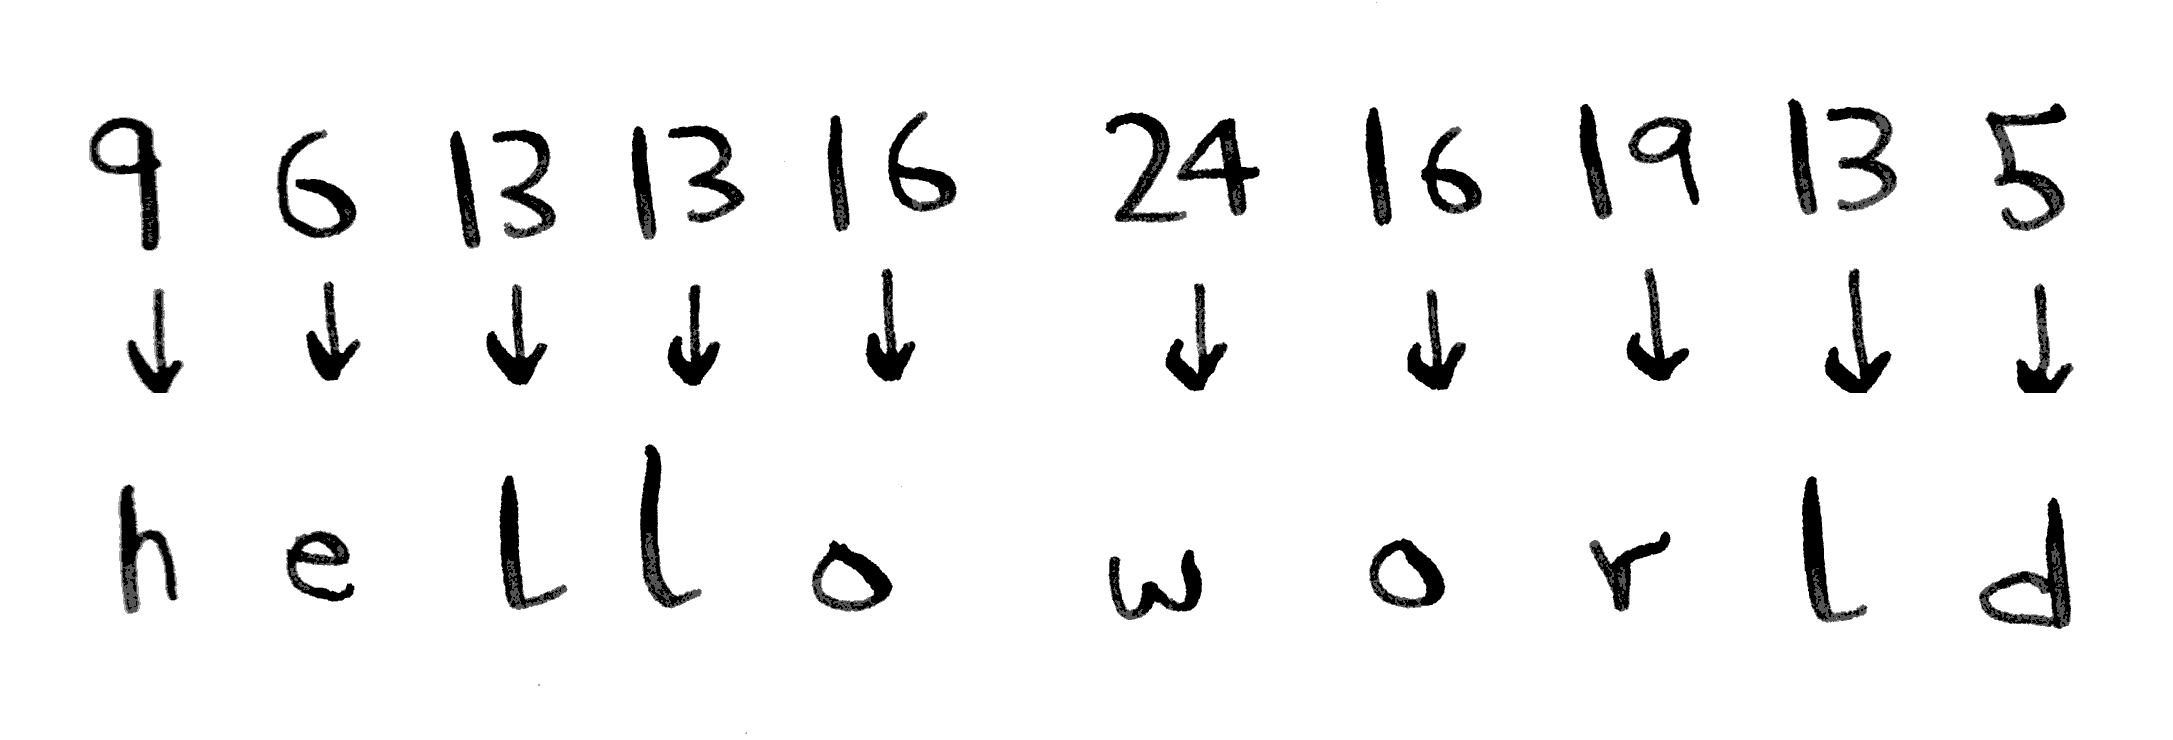 9 6 13 13 16 24 16 19 13 5
↓ ↓ ↓ ↓ ↓ ↓ ↓ ↓ ↓ ↓
h e l l o w o r l d